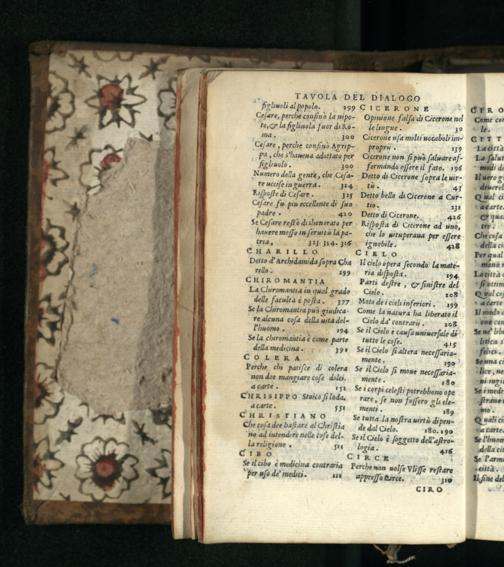 TAVOLA DEL DIALOGO
figliuoli al popolo. 299
Cesare, perche confinò la nipo-
te, & la figliuola fuor di Ro-
ma. 300
Cesare, perche confinò Agrip-
pa, che s'haueua adottato per
figliuolo. 300
Numero della gente, che Cesa-
re uccise in guerra. 314
Risposte di Cesare. 325
Cesare fu piu eccellente di suo
padre. 420
Se Cesare restò dishonorato per
hauere messo in seruitù la pa-
tria. 313. 314. 316
CHARILLO
Detto d'Archidamida sopra Cha
rillo. 299
CHIROMANTIA
La Chiromantia in qual grado
delle facultà è posta. 377
Se la Chiromantia può giudica-
re alcuna cosa della uita del-
l'huomo. 194
Se la chiromantia è come parte
della medicina. 391
COLERA
Perche chi patisce di colera
non dee mangiare cose dolci.
a carte. 152
CHRISIPPO Stoico si loda.
a carte. 551
CHRISTIANO
Che cosa dee bastare al Christia
no ad intendere nelle cose del-
la religione. 511
CIBO
Se il cibo è medicina contraria
per uso de' medici. 111
CICERONE
Opinione falsa di Cicerone nel
le lingue. 30
Cicerone usa molti uocaboli im-
proprij. 139
Cicerone non si può saluare af-
fermando essere il fato. 196
Detto di Cicerone sopra le uir-
tù. 45
Detto bello di Cicerone a Cur-
tio. 231
Detto di Cicerone. 426
Risposta di Cicerone ad uno,
che lo uituperaua per essere
ignobile. 428
CIELO
Il cielo opera secondo la mate-
ria disposta. 194
Parti destre, & sinistre del
Cielo. 208
Moto de i cieli inferiori. 199
Come la natura ha liberato il
Cielo da' contrarij. 208
Se il Cielo è causa uniuersale di
tutte le cose. 415
Se il Cielo si altera necessaria-
mente. 190
Se il Cielo si moue necessaria-
mente. 180
Se i corpi celesti potrebbono ope
rare, se non fussero gli ele-
menti. 189
Se tutta la nostra uirtù dipen-
de dal Cielo. 180. 190
Se il Cielo è soggetto dell'astro-
logia. 416
CIRCE
Perche non uolse Vlisse restare
appresso Circe. 310
CIRO